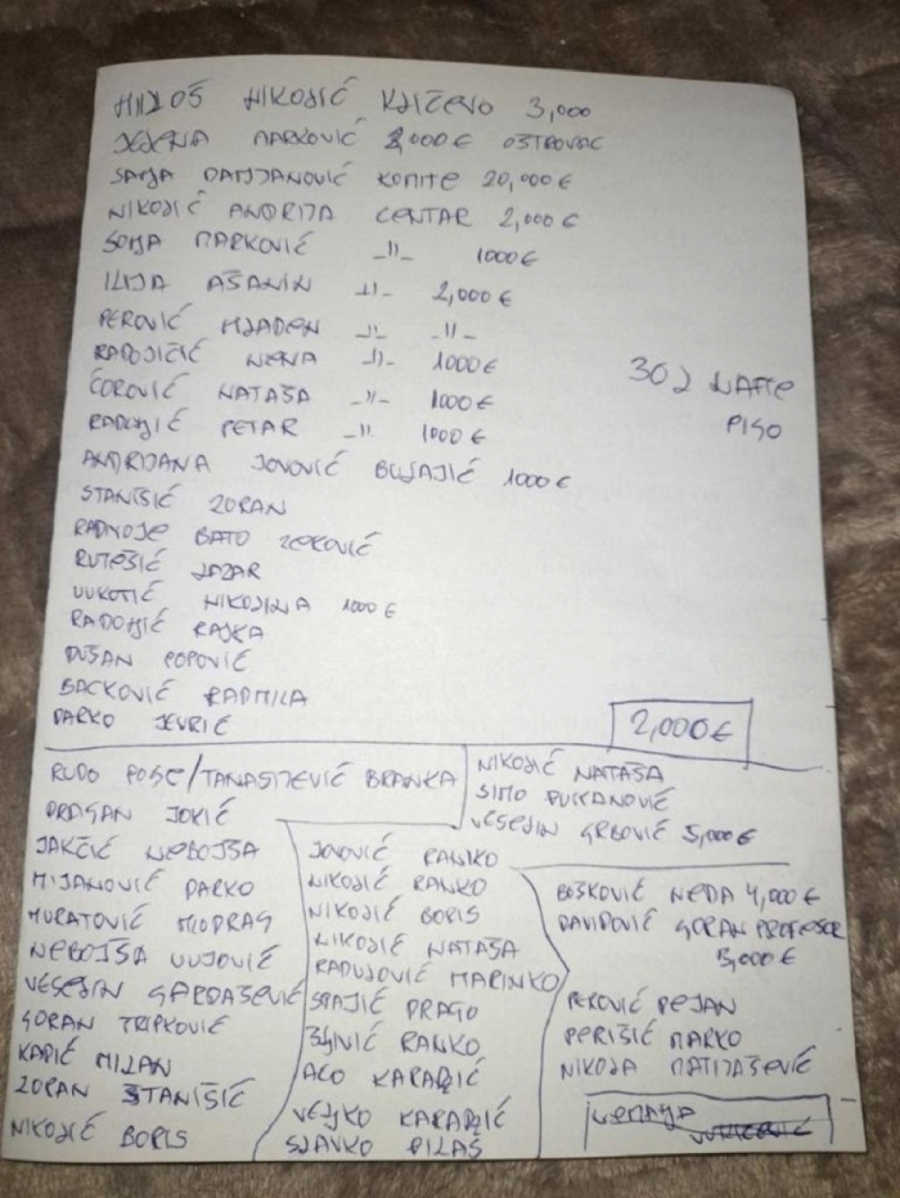 MILOŠ NIKOLIĆ KLIČEVO 3,000
JELENA MARKOVIĆ 2,000 € OSTROVAC
SANJA DAMJANOVIĆ KOMITE 20,000 €
NIKOLIĆ ANDRIJA CENTAR 2,000 €
SONJA MARKOVIĆ -11- 1000 €
ILIJA AŠANIN -11- 2,000 €
PEROVIĆ MLADEN -11- -11-
RADOJIČIĆ NENA -11- 1000 €
ĆOROVIĆ NATAŠA -11- 1000 €
RADULJIĆ PETAR -11 1000 €
30 L NAFTE
PISO
ANDRIJANA JOVOVIĆ BULAJIĆ 1000 €
STANIŠIĆ ZORAN
RADVOJE BATO ZEKOVIĆ
RUTEŠIĆ LAZAR
VUKOTIĆ NIKOLINA 1000 €
RADONJIĆ RAJKA
DUŠAN POPOVIĆ
BACKOVIĆ RADMILA
DARKO JEVRIĆ
2,000 €
RUDO POLJE/TANASIJEVIĆ BRANKA
DRAGAN JOKIĆ
JAKČIĆ NEBOJŠA
MIJANOVIĆ DARKO
MURATOVIĆ MIODRAG
NEBOJŠA VUJOVIĆ
VESELIN GARDAŠEVIĆ
GORAN TRIPKOVIĆ
KADIĆ MILAN
ZORAN STANIŠIĆ
NIKOLIĆ BORIS
JOVOVIĆ RANKO
NIKOLIĆ RANKO
NIKOLIĆ BORIS
NIKOLIĆ NATAŠA
RADULOVIĆ MARINKO
SPAJIĆ DRAGO
RANKO
ACO KARADŽIĆ
VELJKO KARADŽIĆ
SLAVKO PILAŠ
NIKOLIĆ NATAŠA
SIMO PULJANOVIĆ
VESELIN GRBOVIĆ 5,000 €
BOŠKOVIĆ NEDA 4,000 €
DAVIDOVIĆ GORAN PROFESOR
3,000 €
PEROVIĆ DEJAN
PERIŠIĆ MARKO
NIKOLA MATIJAŠEVIĆ
NEMANJA